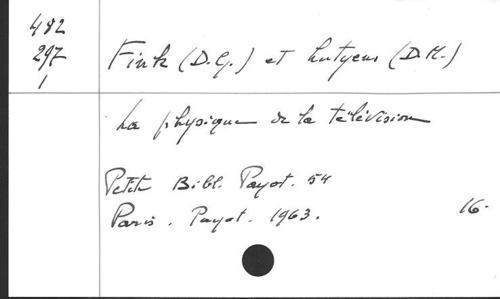 482
297
1
Fink (D.G.) et Lutyens (D.M.)
La physique de la télévision
Petite Bibl. Payot. 54
Paris. Payot. 1963. 16-